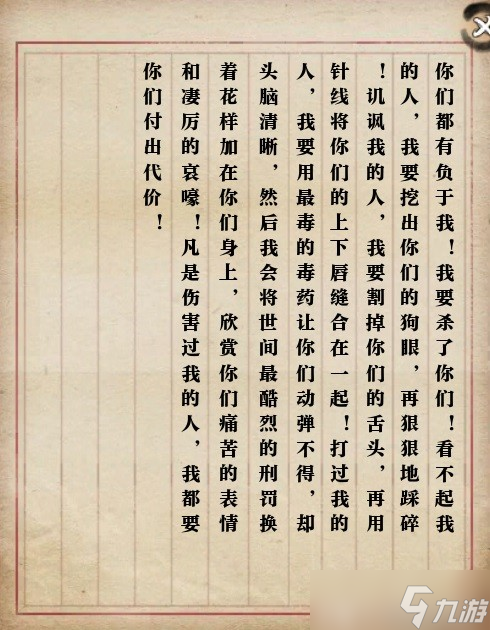 你们都有负于我！我要杀了你们！看不起我
的人，我要挖出你们的狗眼，再狠狠地踩碎
！讥讽我的人，我要割掉你们的舌头，再用
针线将你们的上下唇缝合在一起！打过我的
人，我要用最毒的毒药让你们动弹不得，却
头脑清晰，然后我会将世间最酷烈的刑罚换
着花样加在你们身上，欣赏你们痛苦的表情
和凄厉的哀嚎！凡是伤害过我的人，我都要
你们付出代价！
九游